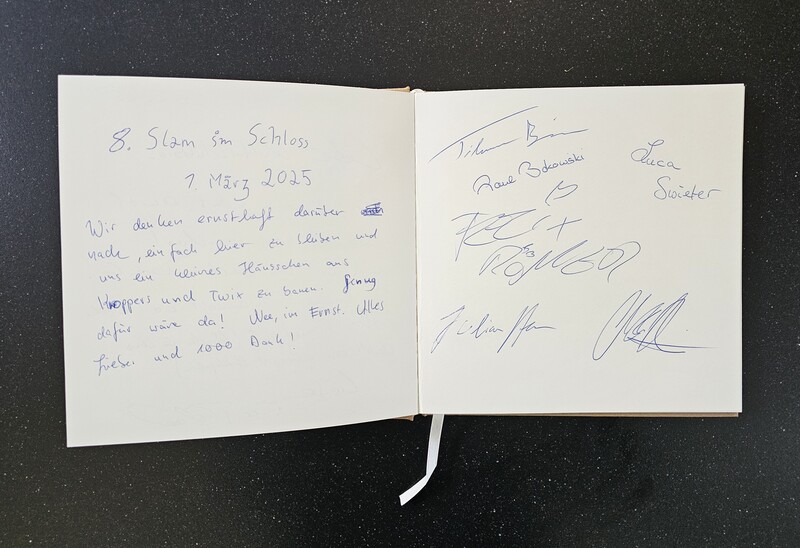 8. Slam im Schloss
1. März 2025
Wir denken ernsthaft darüber
nach, einfach hier zu bleiben und
uns ein kleines Häusschen aus
Knoppers und Twix zu bauen. Genug
dafür wäre da! Nee, im Ernst. Alles
Liebe und 1000 Dank!
Luca
Swieter
FELIX
RÖMER